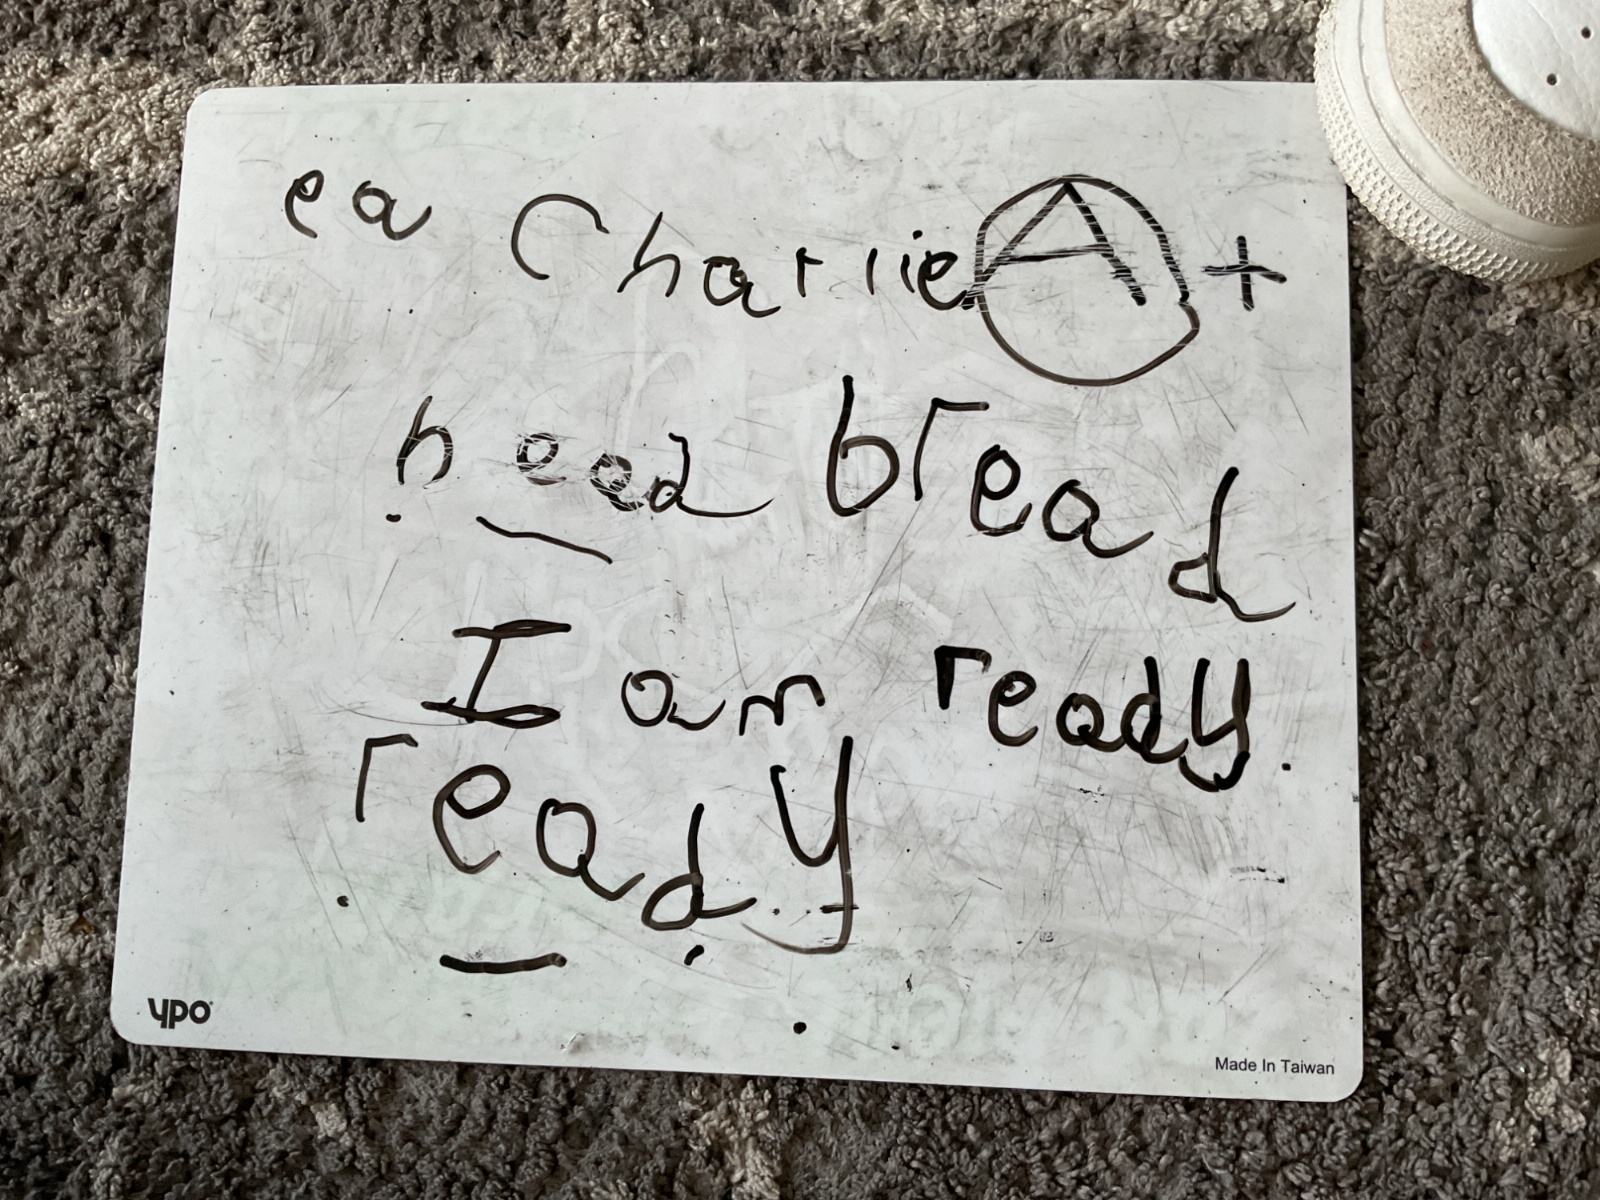 ea Charlie A+
head bread
I am ready.
ready
ypo
Made In Taiwan